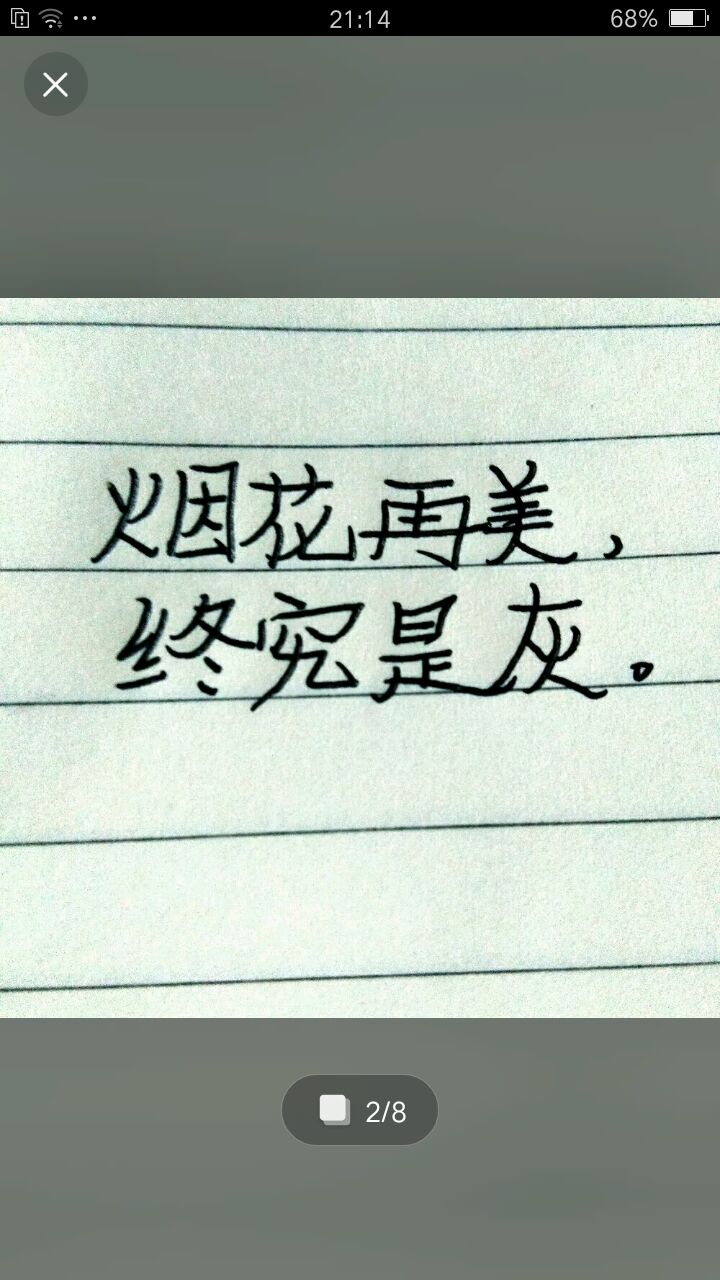 21:14
68%
烟花再美，
终究是灰。
2/8